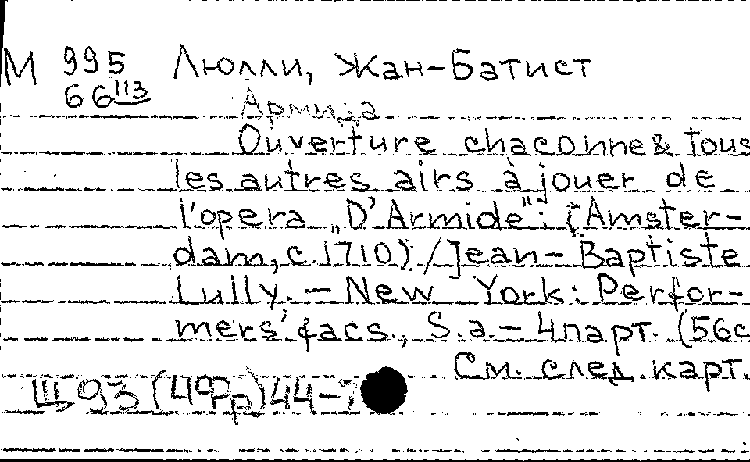 М 995 Люлли, Жан-Батист
66 113
Армида
Ouverture chaconne & tous
les autres airs à jouer de
l'opera „D'Armide": (Amster-
dam, c. 1710) / Jean-Baptiste
Lully. — New York: Perfor-
mers' facs., S.a. — 4 парт. (56с
См. след. карт.
Щ93(4Фр)44-7